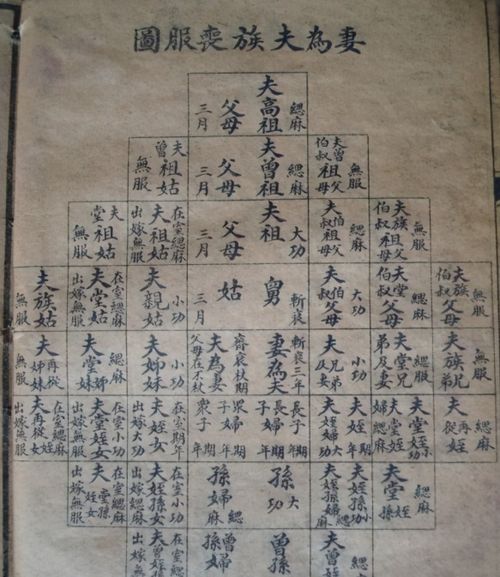 妻為夫族喪服圖
緦麻 夫高祖父母 三月
無服 夫曾伯叔祖父母
緦麻 夫曾祖父母 三月
夫曾祖姑 無服
無服 夫族伯叔祖父母
緦麻 夫伯叔祖父母
大功 夫祖父母 三月
在室緦麻 夫祖姑 出嫁無服
夫堂祖姑 無服
無服 夫族伯叔父母
緦麻 夫堂伯叔父母
大功 夫伯叔父母
斬衰 舅姑 三月
小功 夫親姑
在室緦麻 夫堂姑 出嫁無服
夫族姑 無服
夫族兄弟
緦麻 夫堂兄弟及妻
小功 夫兄弟及妻
斬衰三年 妻為夫
齊衰杖期 夫為妻 父母在不杖
小功 夫姊妹
緦麻 夫堂姊妹
夫再從姊妹 無服
緦麻 夫再從姪
夫堂姪小功 夫堂姪婦緦麻
夫姪期年 夫姪婦大功
長子期年 長婦期年
眾子期年 眾婦
在室期年 夫姪女 出嫁大功
在室小功 夫堂姪女 出嫁緦麻
在室緦麻 夫再從姪女 出嫁無服
緦麻 夫堂姪孫
夫姪孫小功 夫姪孫婦緦麻
孫 大功
孫婦 緦麻
在室小功 夫姪孫女 出嫁緦麻
在室緦麻 夫堂姪孫女 出嫁無服
緦麻 夫曾姪孫
曾孫
曾孫婦
在室緦麻 夫曾姪孫 出嫁無服